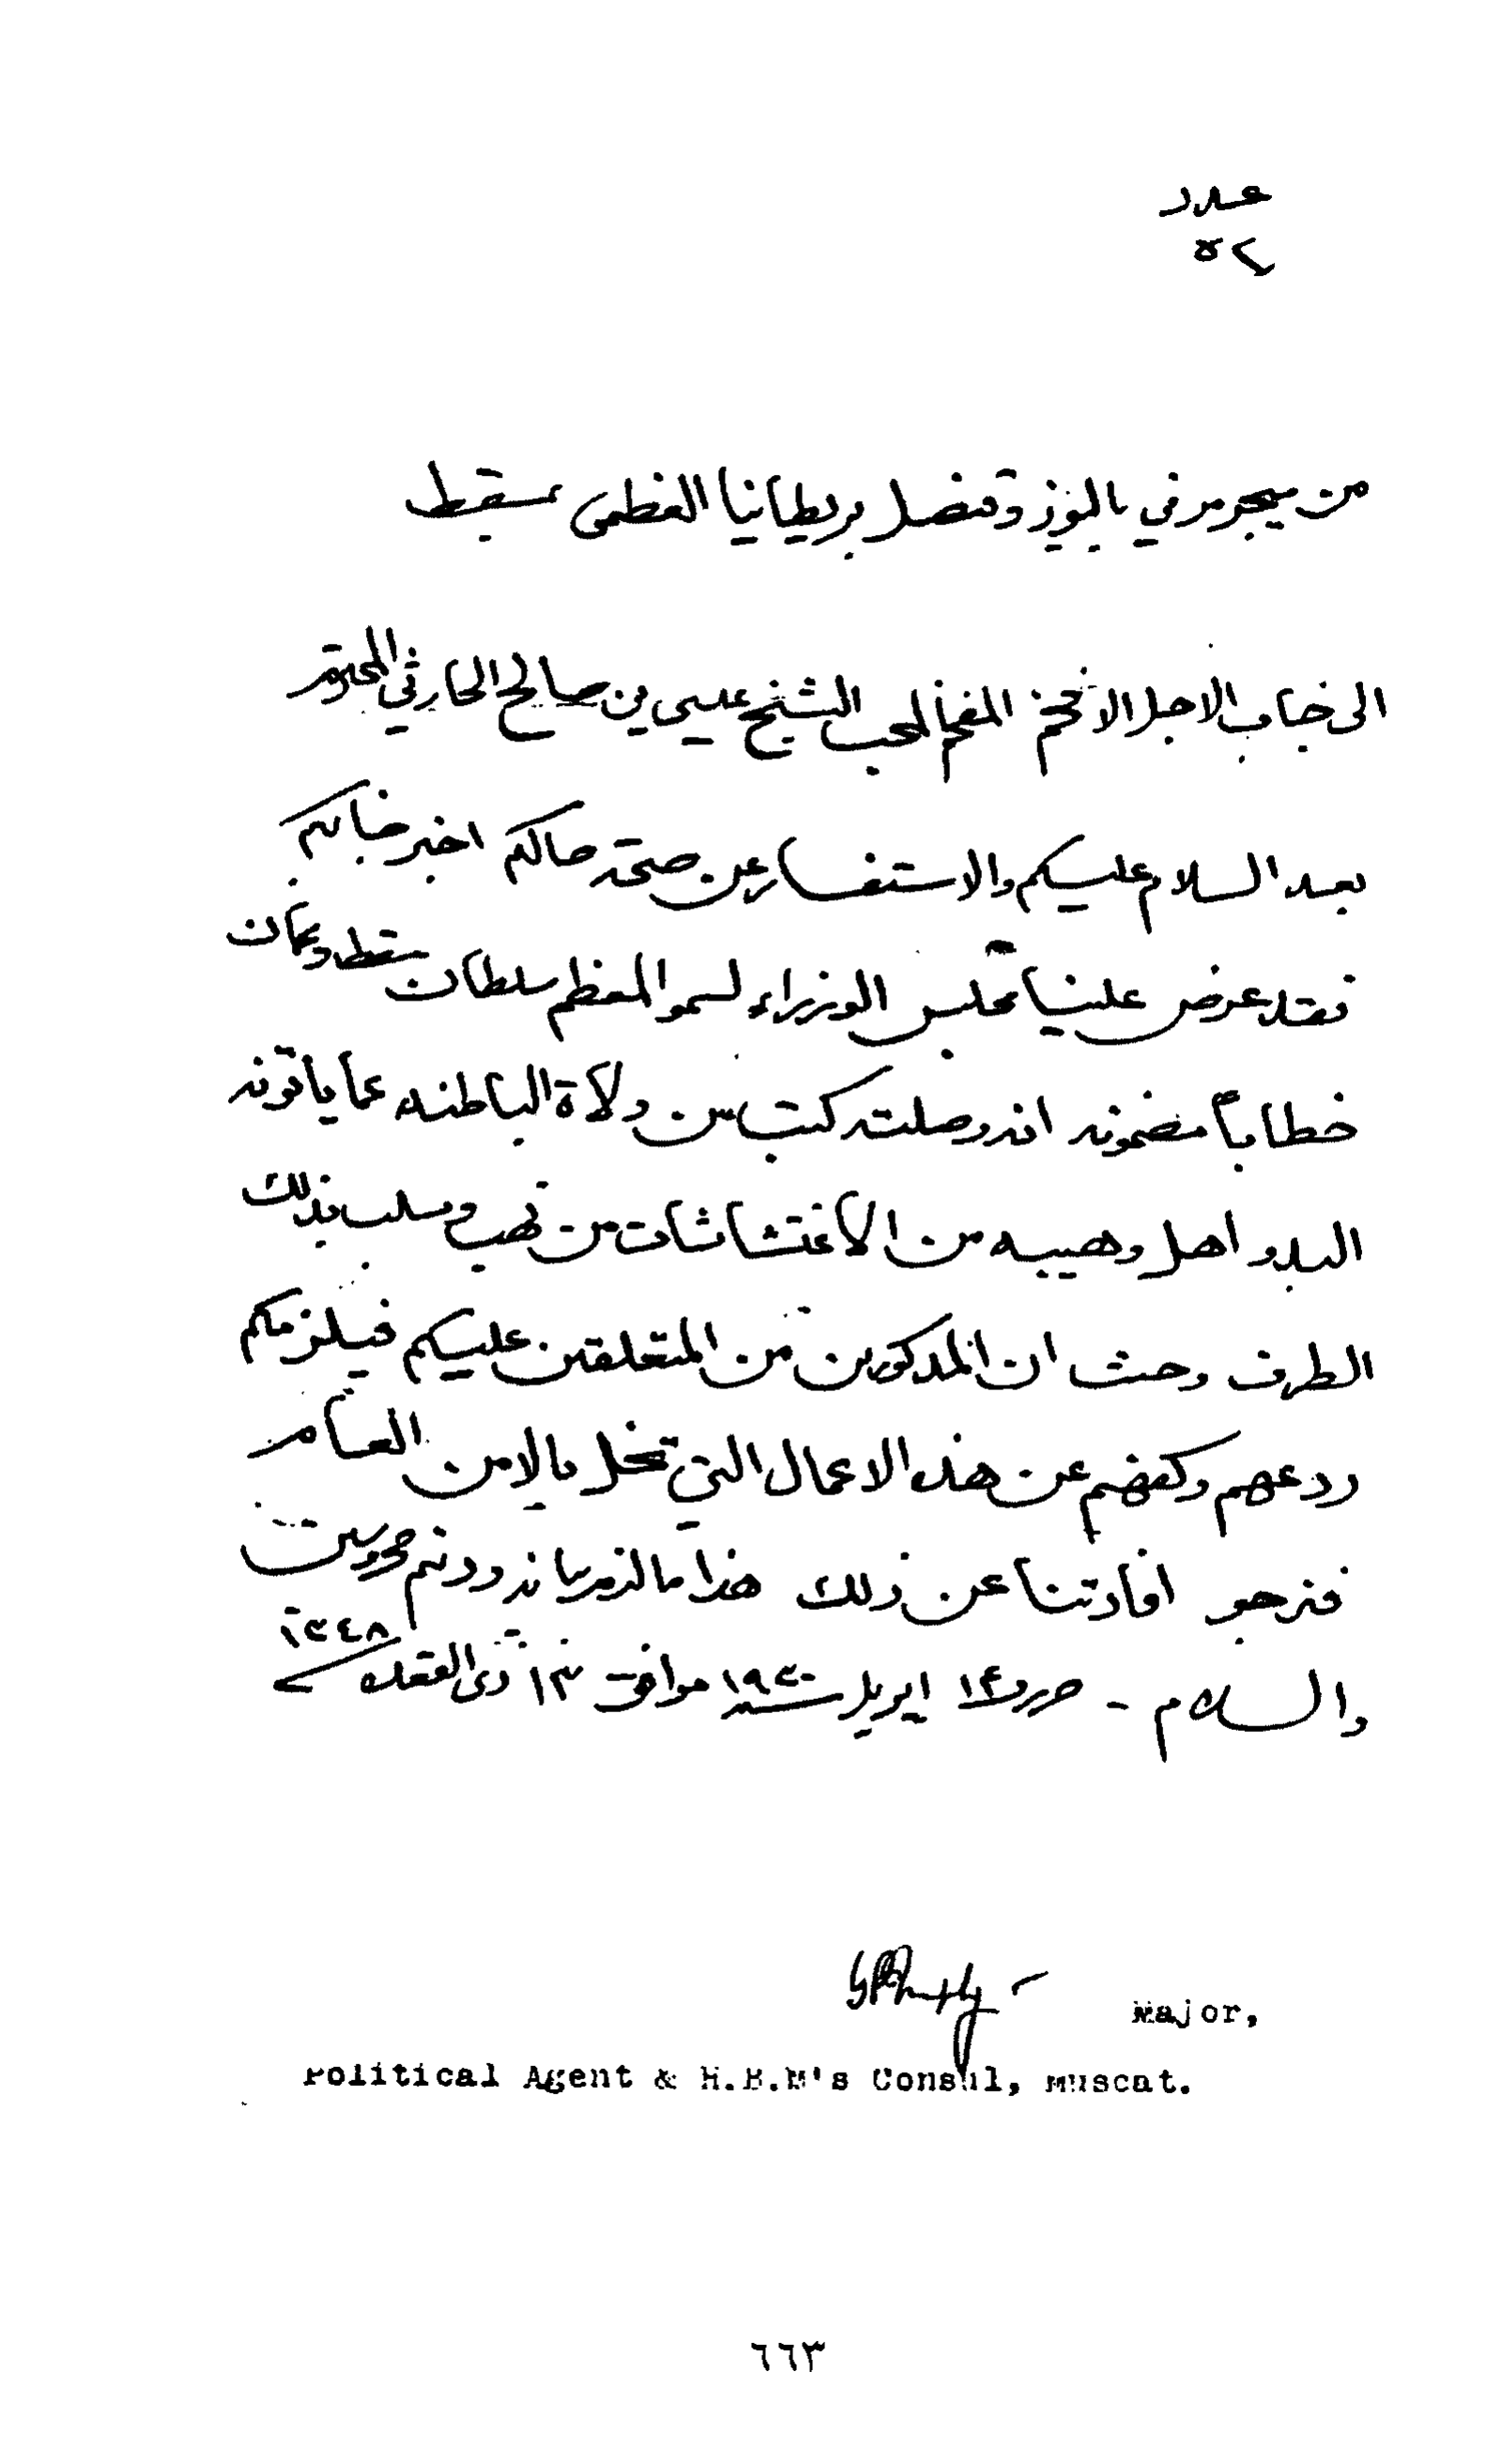 عدد
٥٢
من ميجر مرفي باليوز وقنصل بريطانيا العظمى بمسقط
الى جناب الاجل الافخم المفخم المحب الشيخ عيسى بن صالح الحارثي المحترم
بعد السلام عليكم والاستفسار عن صحة حالكم اخبر جنابكم
فقد عرض علينا مجلس الوزراء لسمو المعظم سلطان مسقط وعمان
خطاباً مضمونه انه وصلته كتب من ولاة الباطنه عما ياتونه
البدو اهل وهيبه من الاغتشاشات من نهب وسلب بذلك
الطرف وحيث ان المذكورين من المتعلقين عليكم فيلزمكم
ردعهم وكفهم عن هذه الاعمال التي تخل بالامن العام
فنرجو افادتنا عن ذلك هذا ما لزم بيانه ودمتم محروسين
والسلام - حرر ١٤ ابريل سنة ١٩٣٠ موافق ١٣ ذي القعده سنة ١٣٤٨
Major,
Political Agent & H.B.M's Consul, Muscat.
٦٦٣